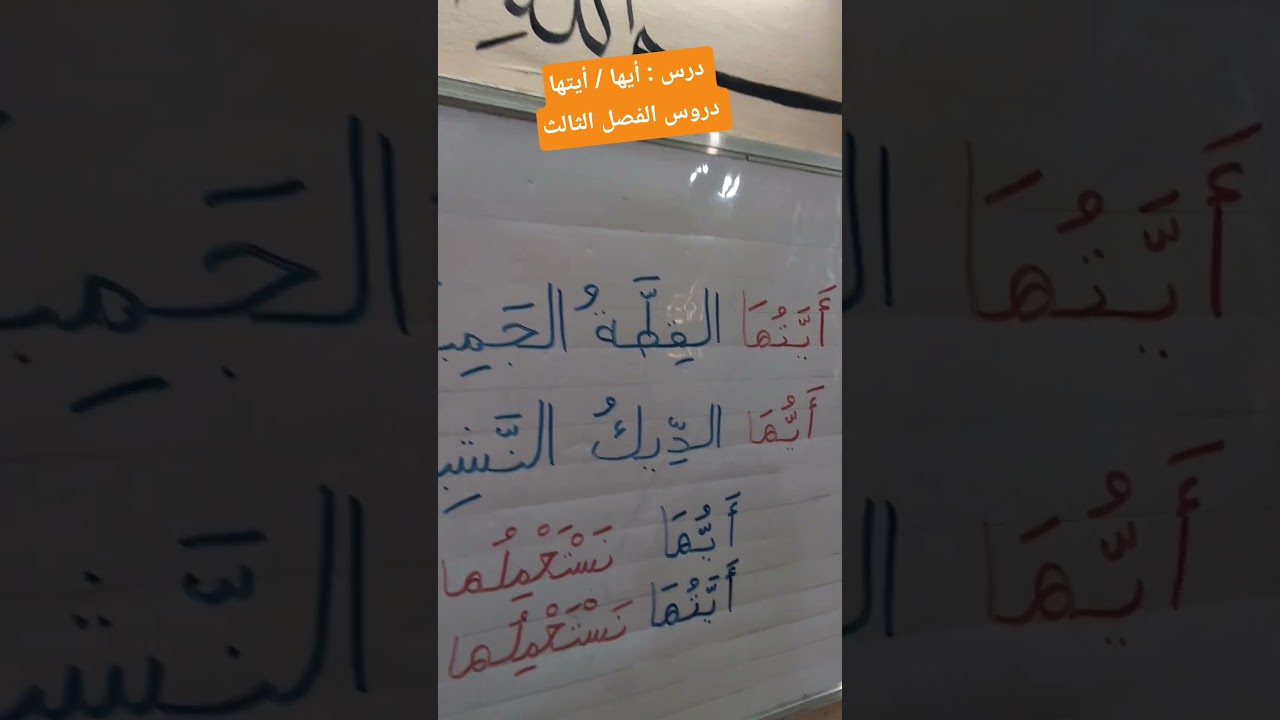 والله
درس : أيها / أيتها
دروس الفصل الثالث
أَيَّتُهَا القِطَّةُ الجَمِي
أَيُّهَا الدِّيكُ النَّشِي
أَيُّهَا نَسْتَعْمِلُها
أَيَّتُهَا نَسْتَعْمِلُها